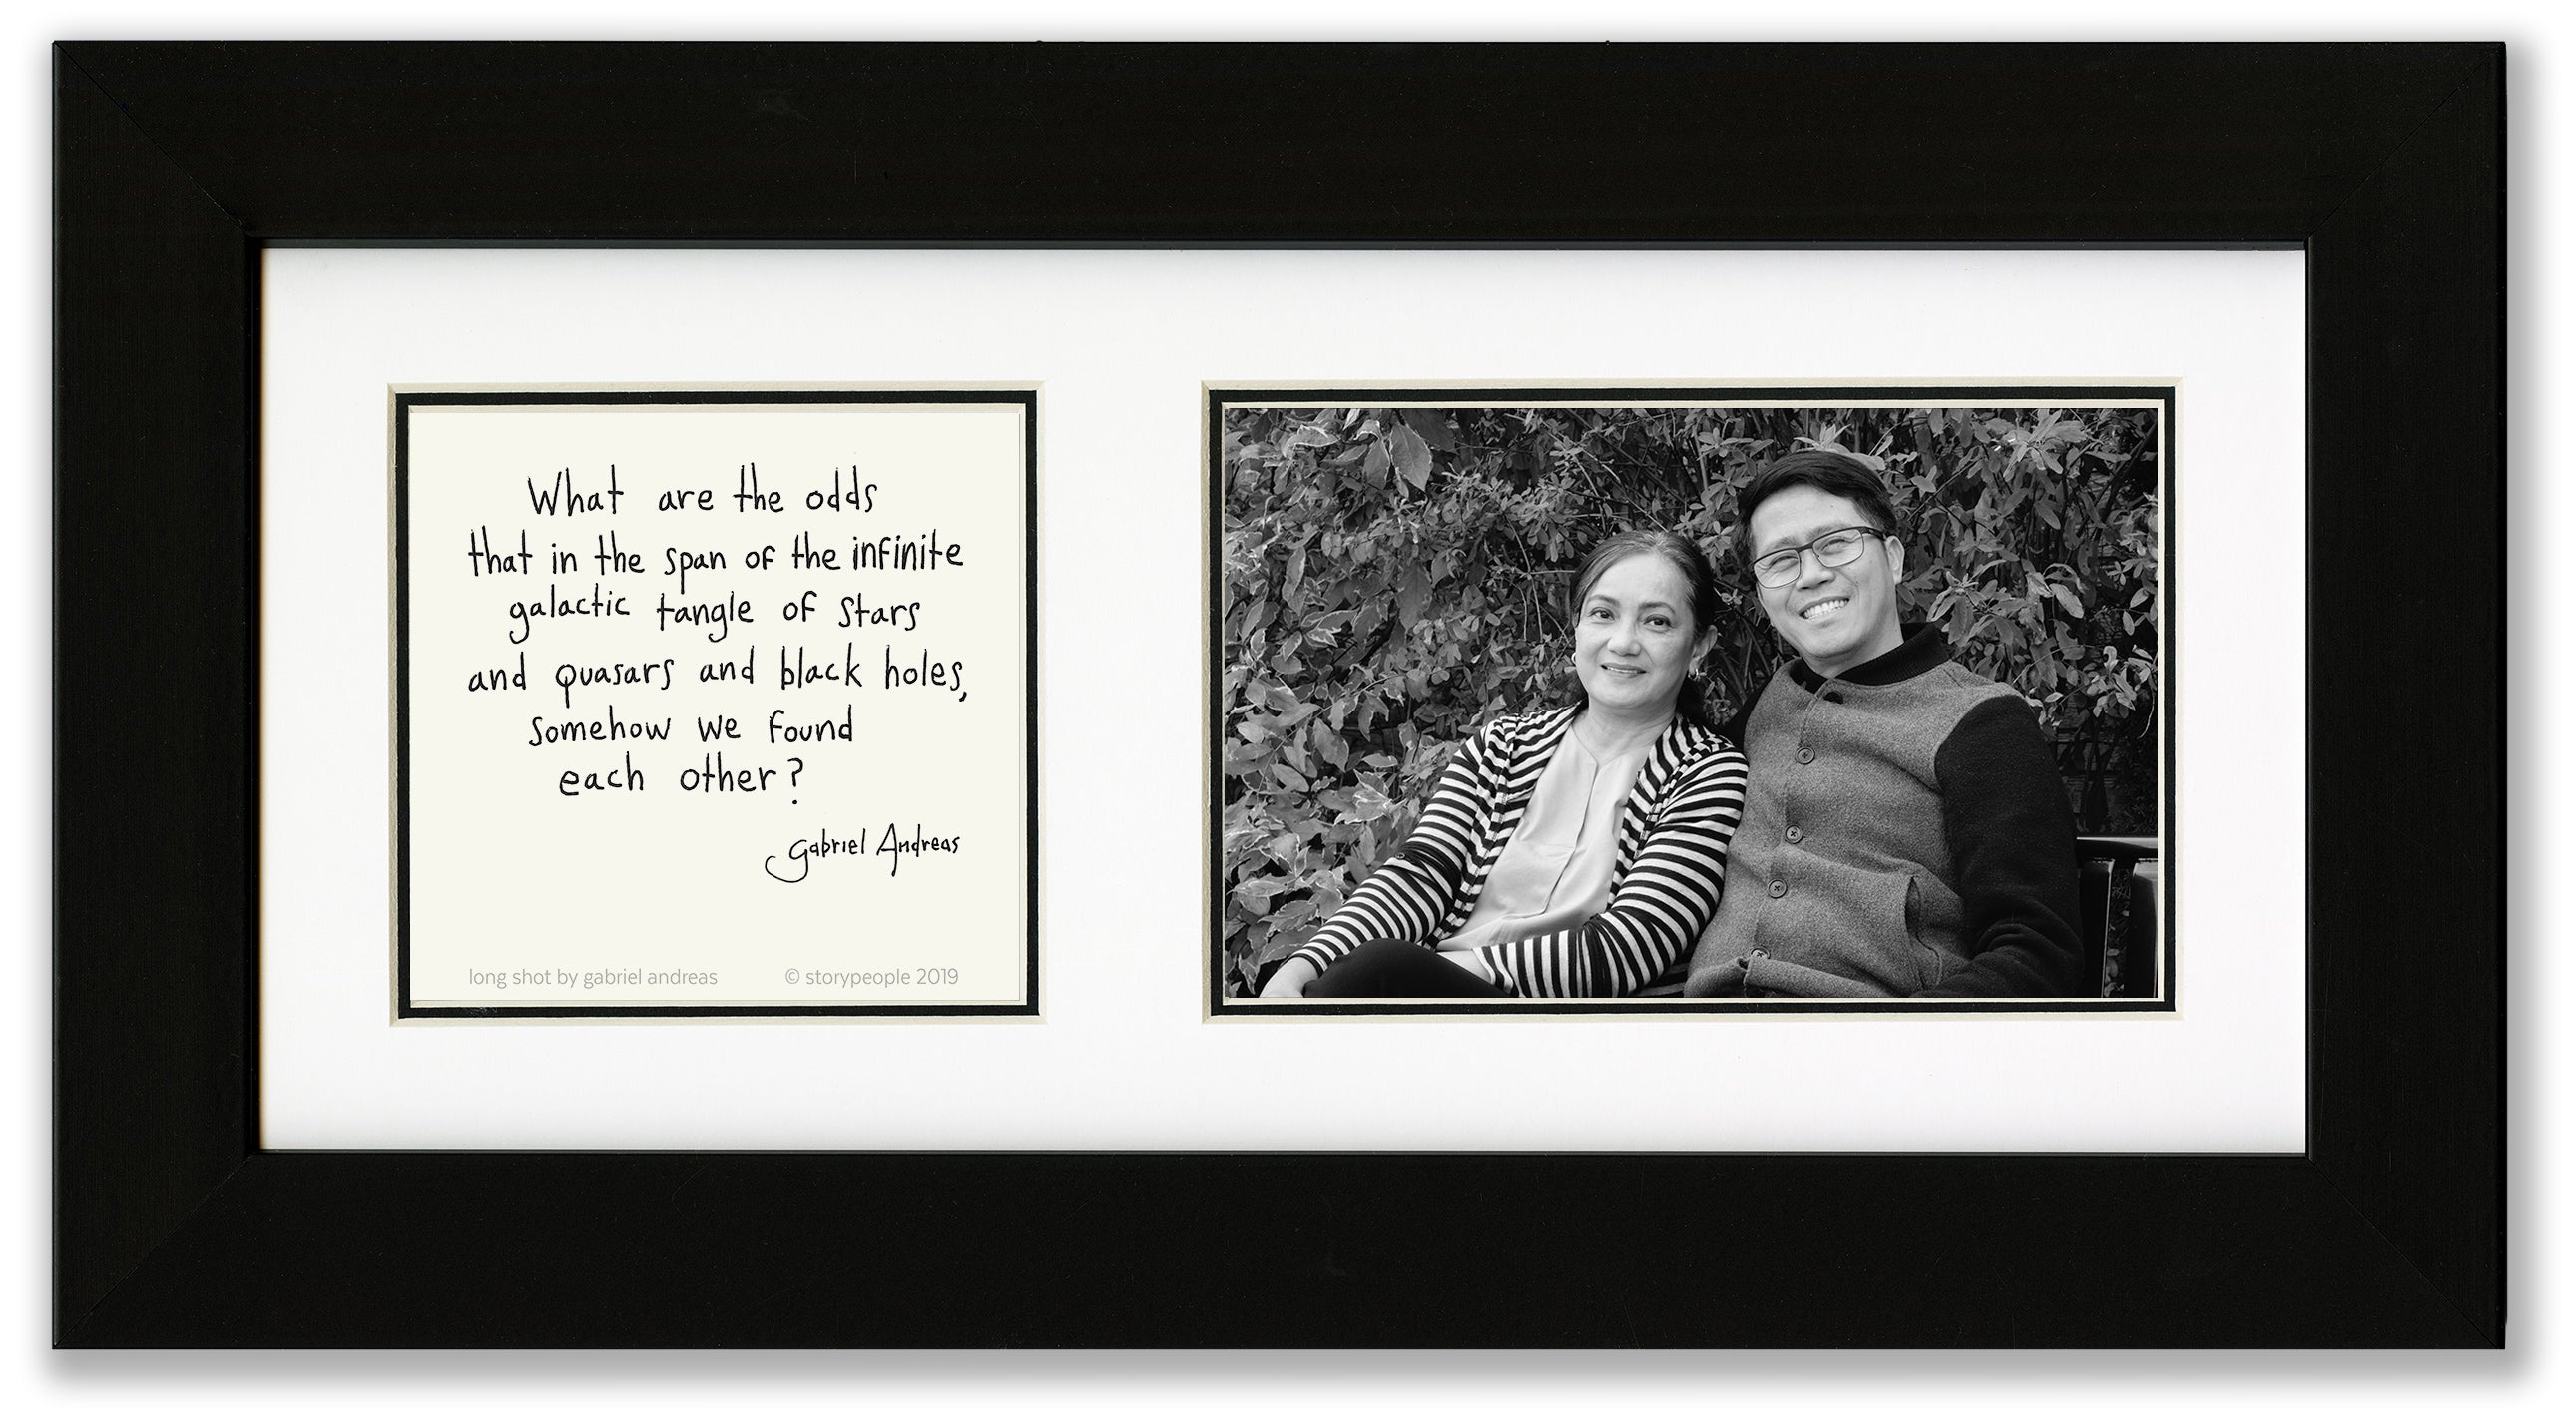 What are the odds
that in the span of the infinite
galactic tangle of stars
and quasars and black holes,
somehow we found
each other?
Gabriel Andreas
long shot by gabriel andreas © storypeople 2019